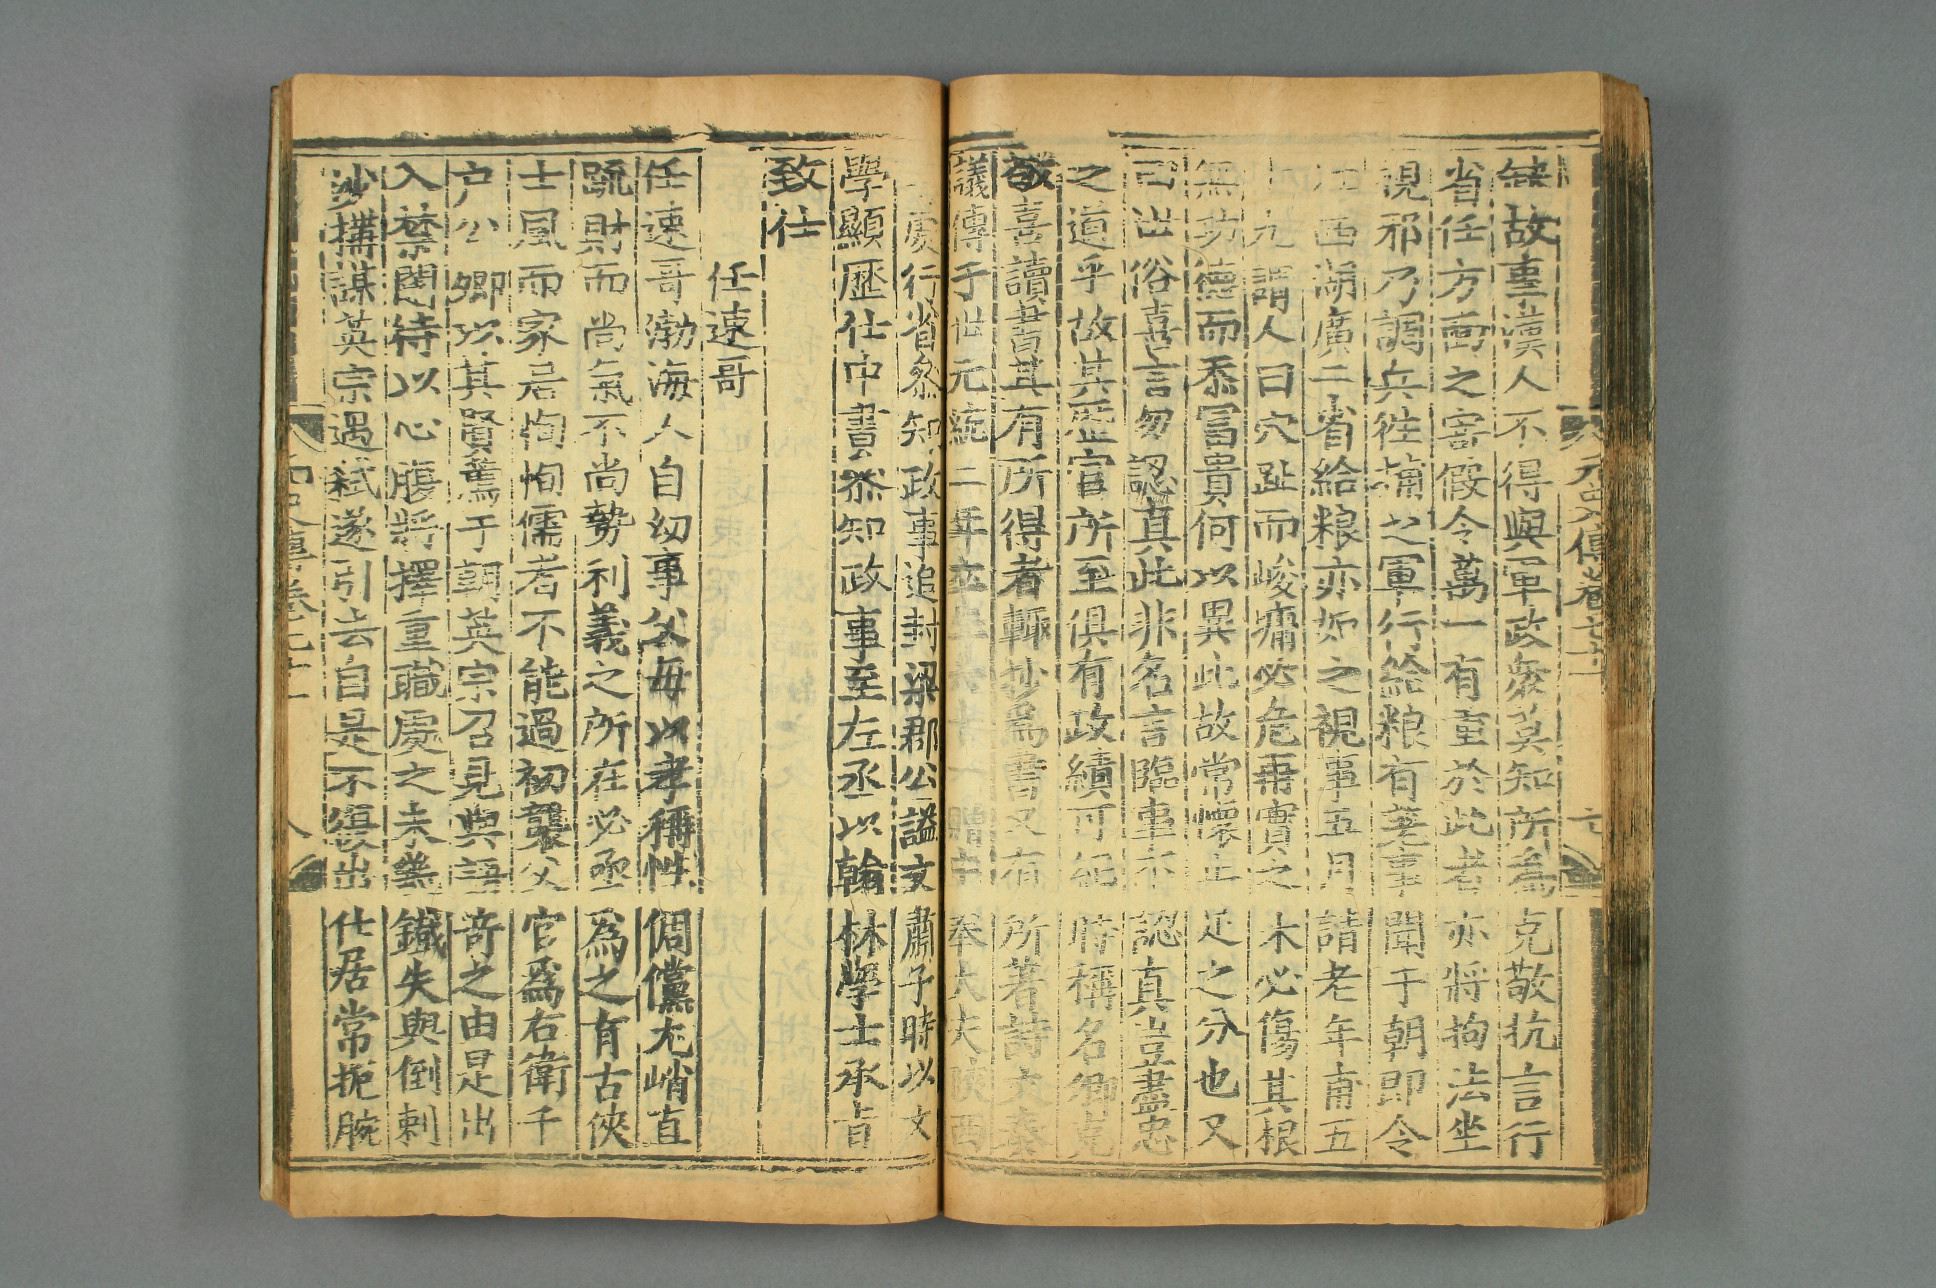 缺故事漢人不得與軍政衆莫知所為克敬抗言行
省任方面之寄假令萬一有重於此者亦將拘法坐
視邪乃調兵徃捕之軍行給粮有差事聞于朝即令
江西湖廣二省給粮亦如之視事五月請老年甫五
十九謂人曰穴趾而峻墉必危再實之木必傷其根
無功德而忝冨貴何以異此故常懷止足之分也又
曰世俗喜言勿認真此非名言臨事不認真豈盡忠
之道乎故其歷官所至俱有政績可紀時稱名卿克
敬喜讀書其有所得者輒抄為書又有所著詩文奏
議傳于世元統二年卒年六十一贈中奉大夫陝西
行省參知政事追封梁郡公謚文肅子時以文
學顯歷仕中書參知政事至左丞以翰林學士承旨
致仕
任速哥
任速哥渤海人自幼事父母以孝稱性倜儻尤峭直
疏財而尚氣不尚勢利義之所在必亟為之有古俠
士風而家居恂恂儒者不能過初襲父官為右衛千
户公卿以其賢薦于朝英宗召見與語奇之由是出
入禁闥待以心腹將擇重職處之未幾鐵失與倒剌
沙搆謀英宗遇弒遂引去自是不復出仕居常扼腕
元史傳卷七十一
七
八